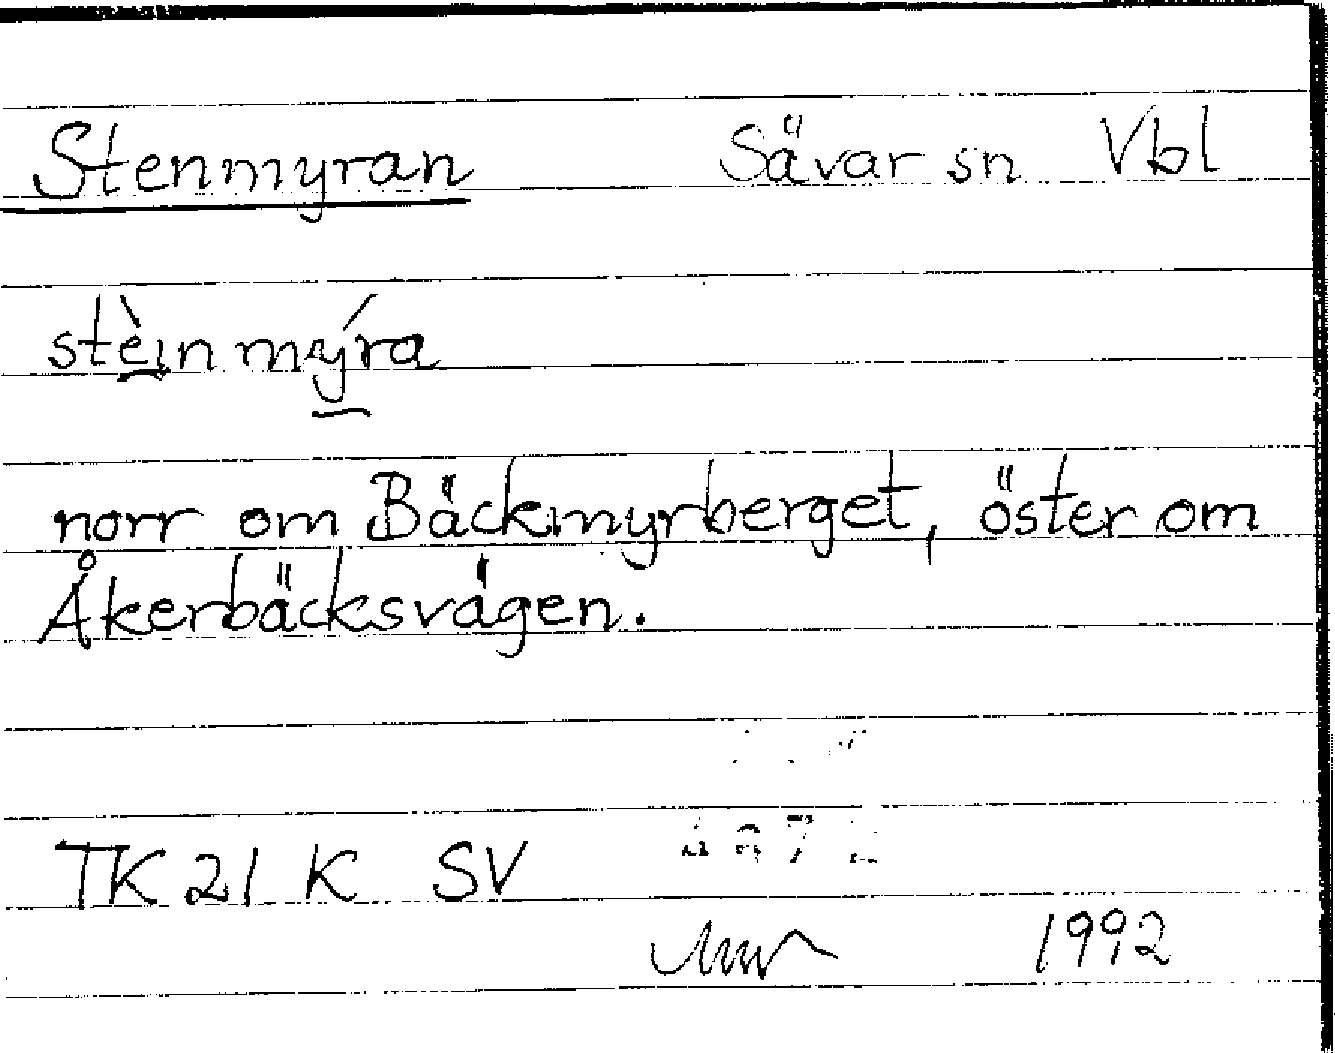 Stenmyran Sävar sn Vbl
stèin mýra
norr om Bäckmyrberget, öster om
Åkerbäcksvägen.
TK 21 K SV
1992